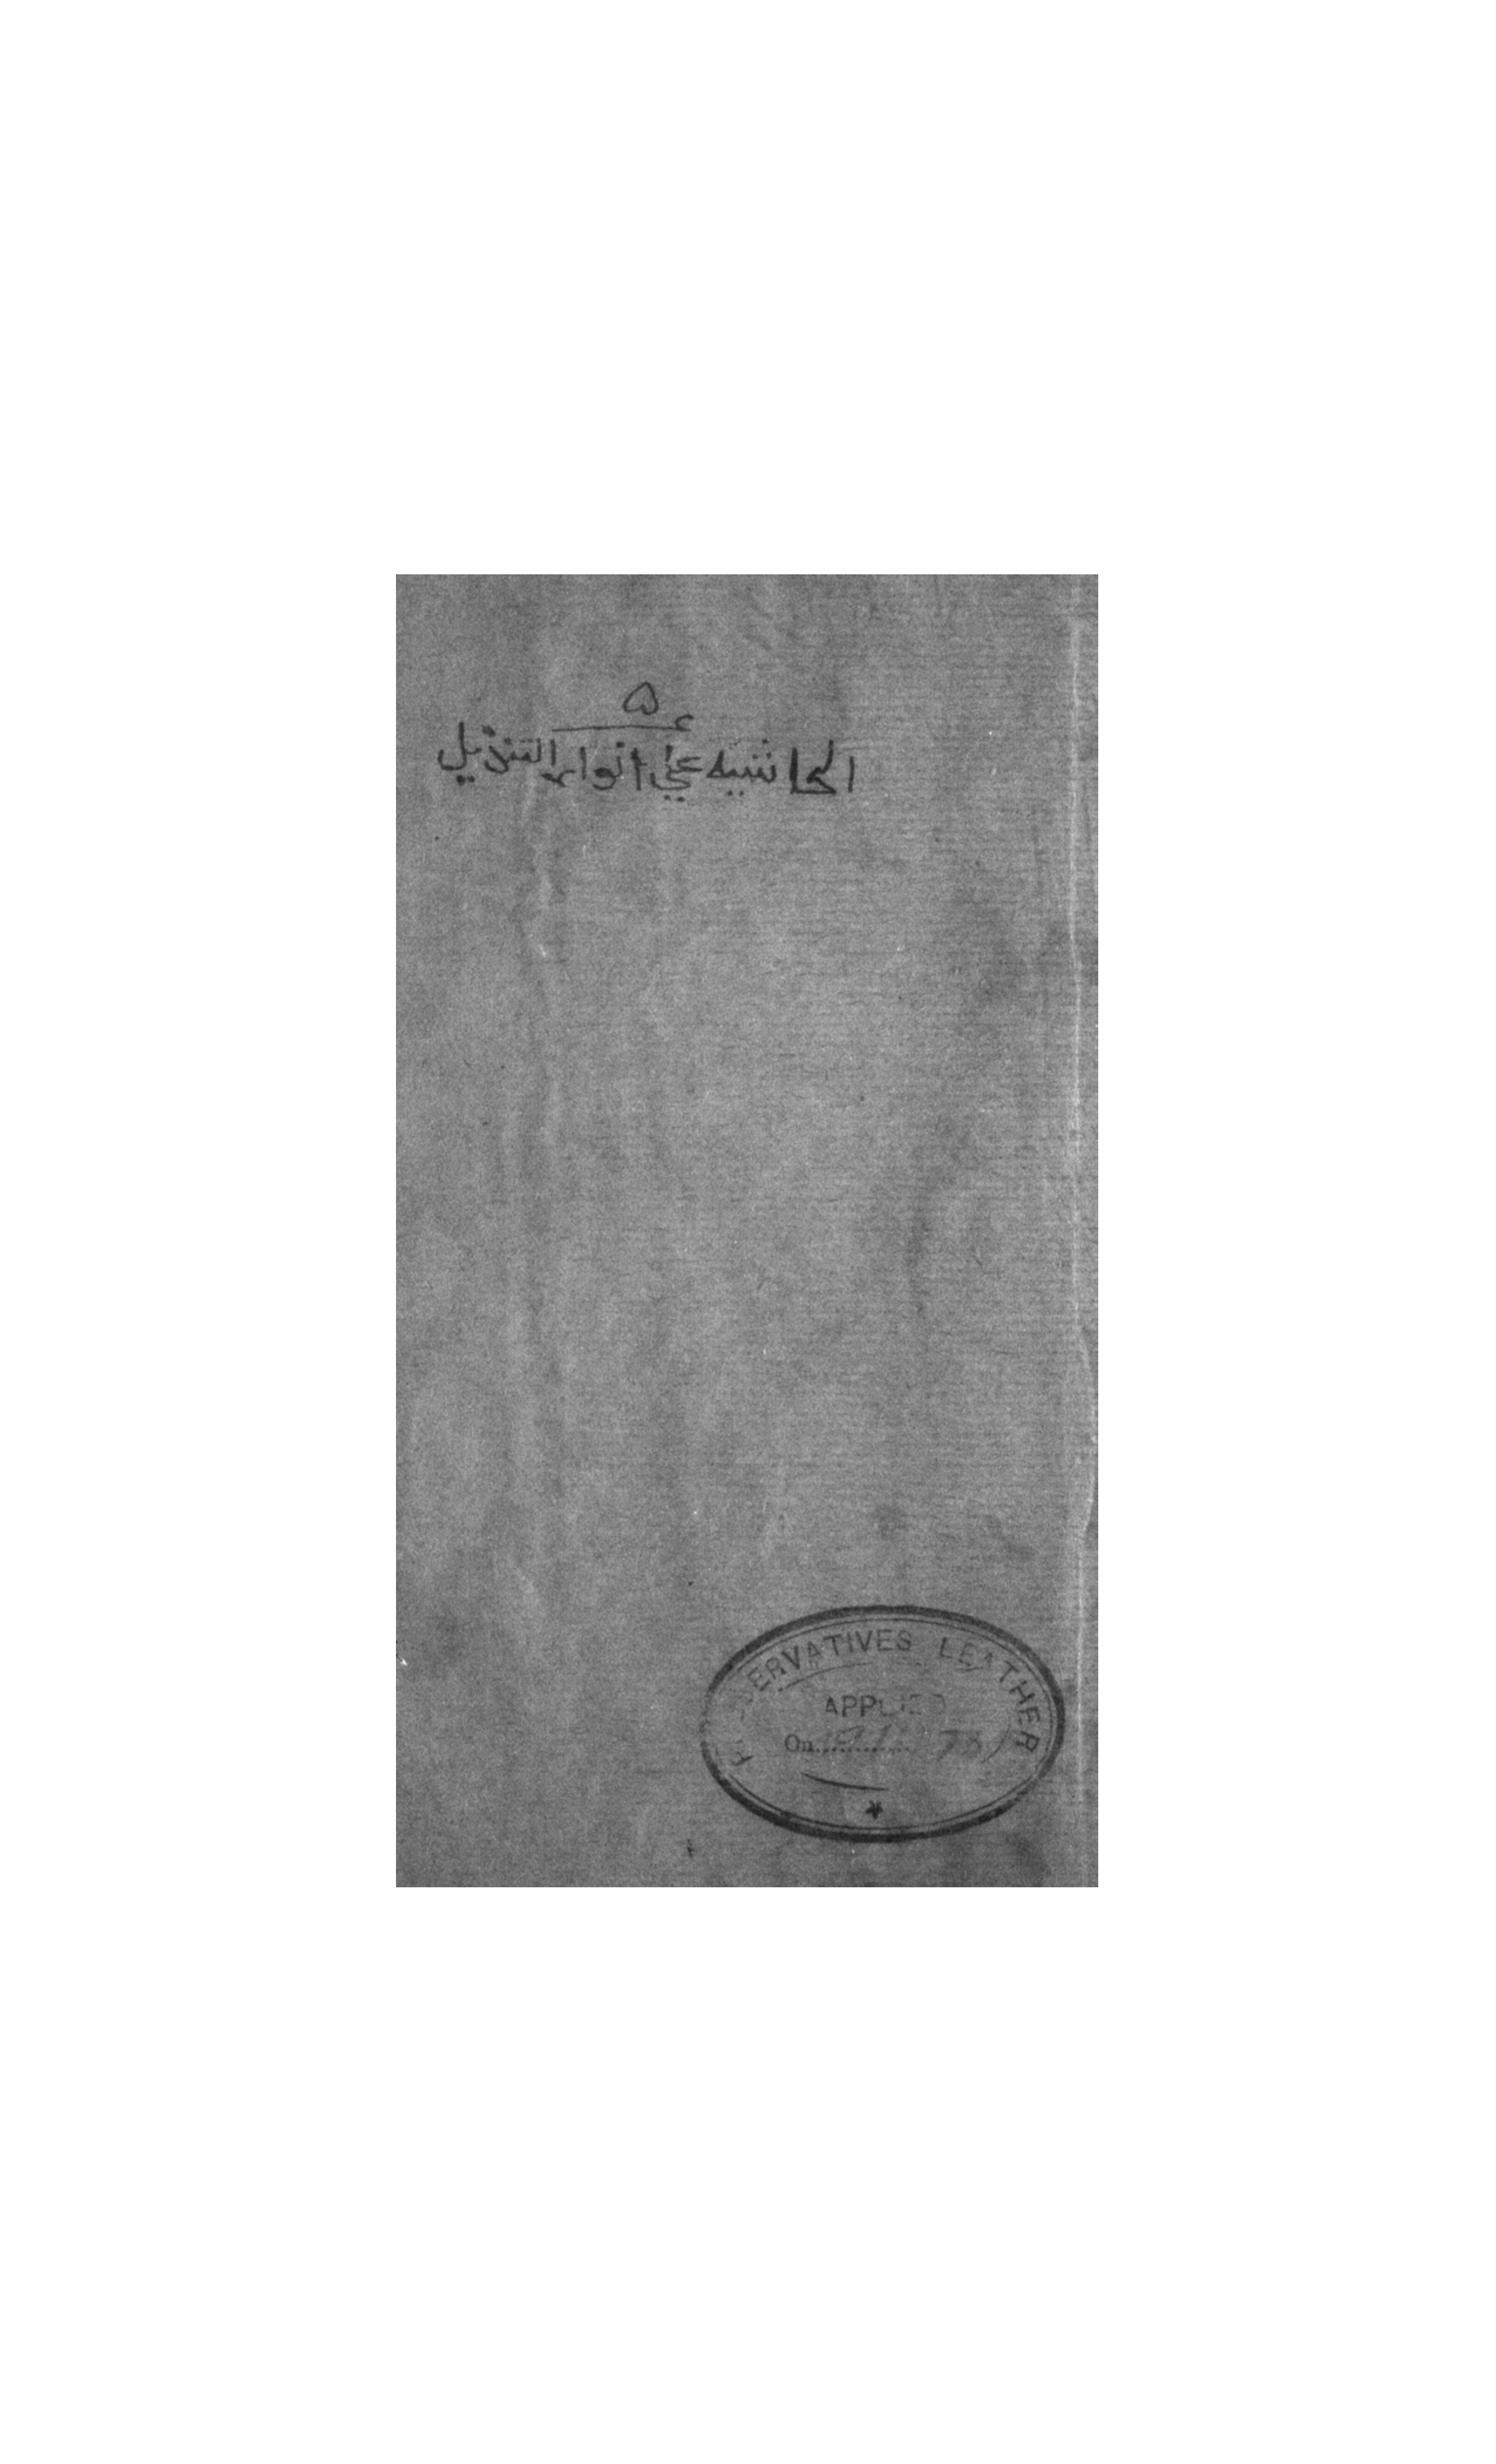 ۵
الحاشيه علي انوار التنزيل
PRESERVATIVES LEATHER
APPLIED
On